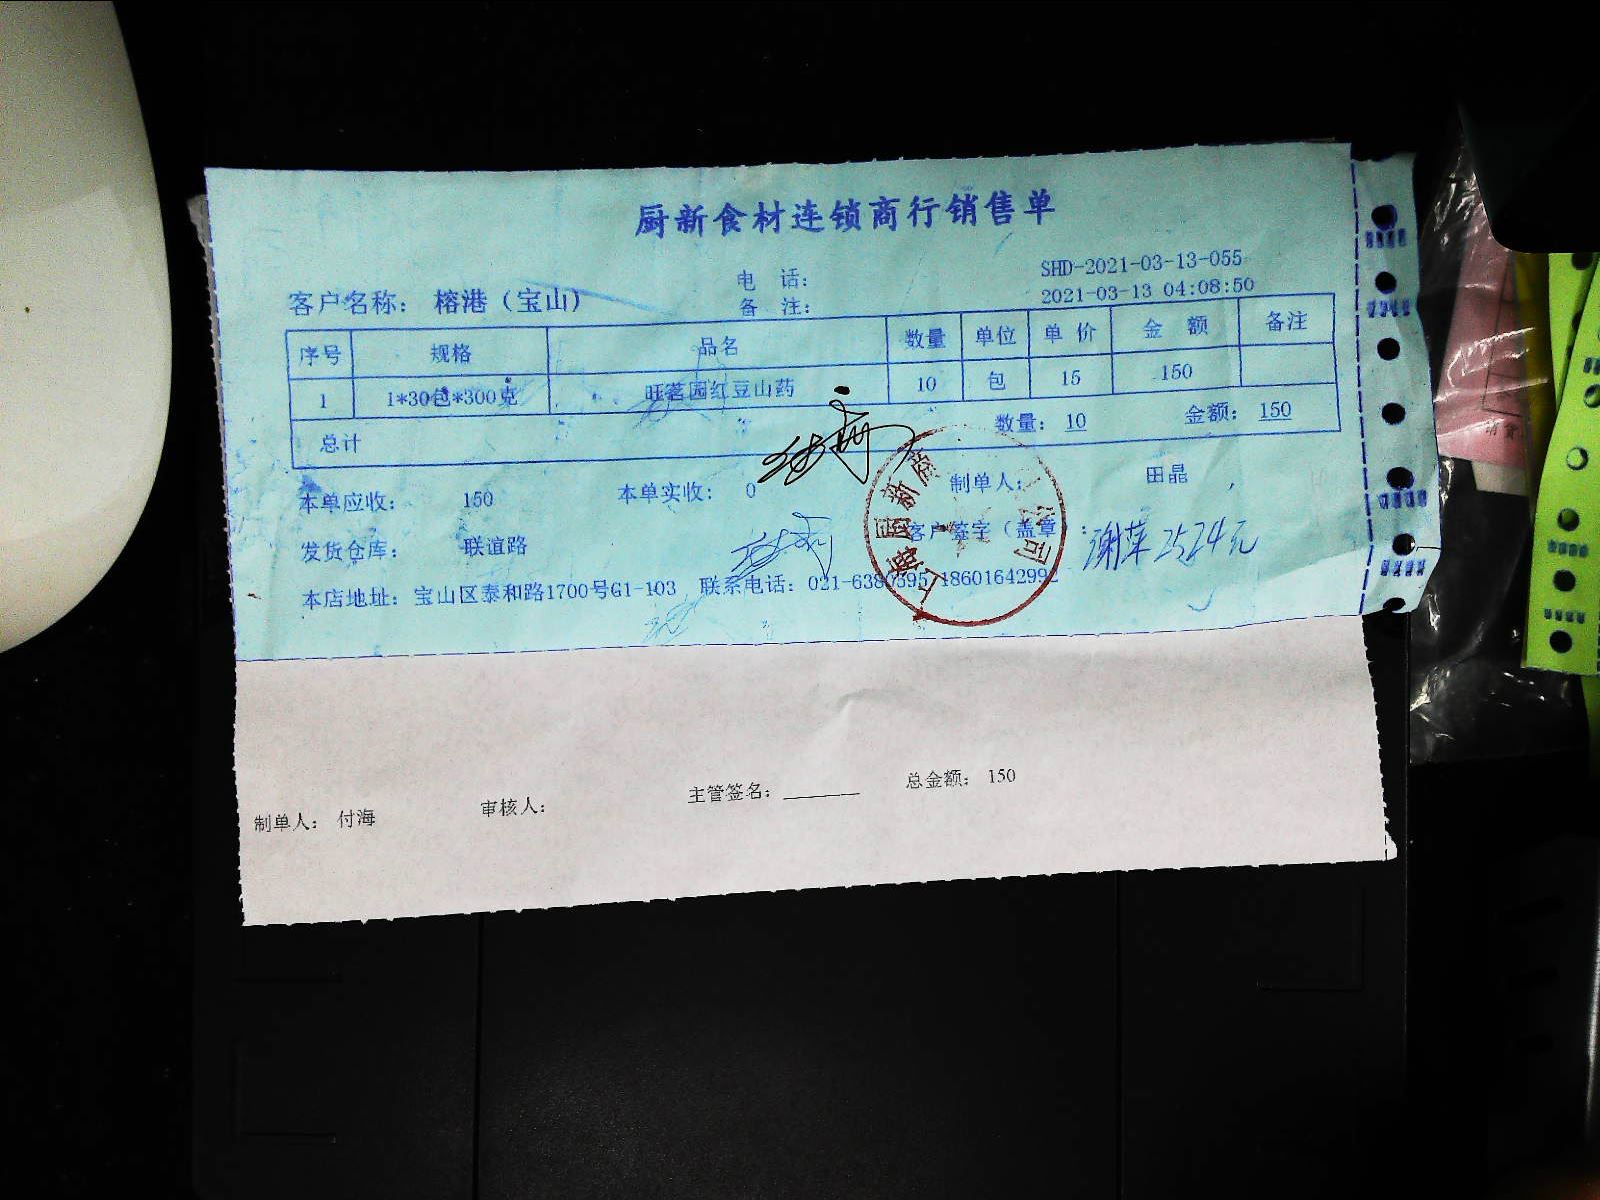 厨新食材连锁商行销售单
电 话： SHD-2021-03-13-055
客户名称： 榕港（宝山） 备 注： 2021-03-13 04:08:50
序号 规格 品名 数量 单位 单 价 金 额 备注
1 1*30包*300克 旺茗园红豆山药 10 包 15 150
总计 数量： 10 金额： 150
本单应收： 150 本单实收： 0 制单人： 田晶
发货仓库： 联谊路 客户签字（盖章 ： 谢苹 2524元
本店地址： 宝山区泰和路1700号G1-103 联系电话： 021-6380595 18601642992
上海厨新 公司
制单人： 付海 审核人： 主管签名： 总金额： 150